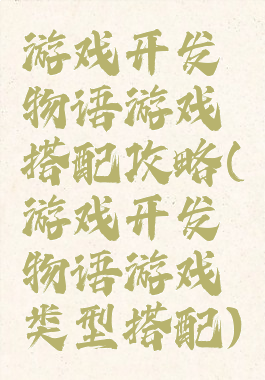 游戏开发
物语游戏
搭配攻略(
游戏开发
物语游戏
类型搭配)